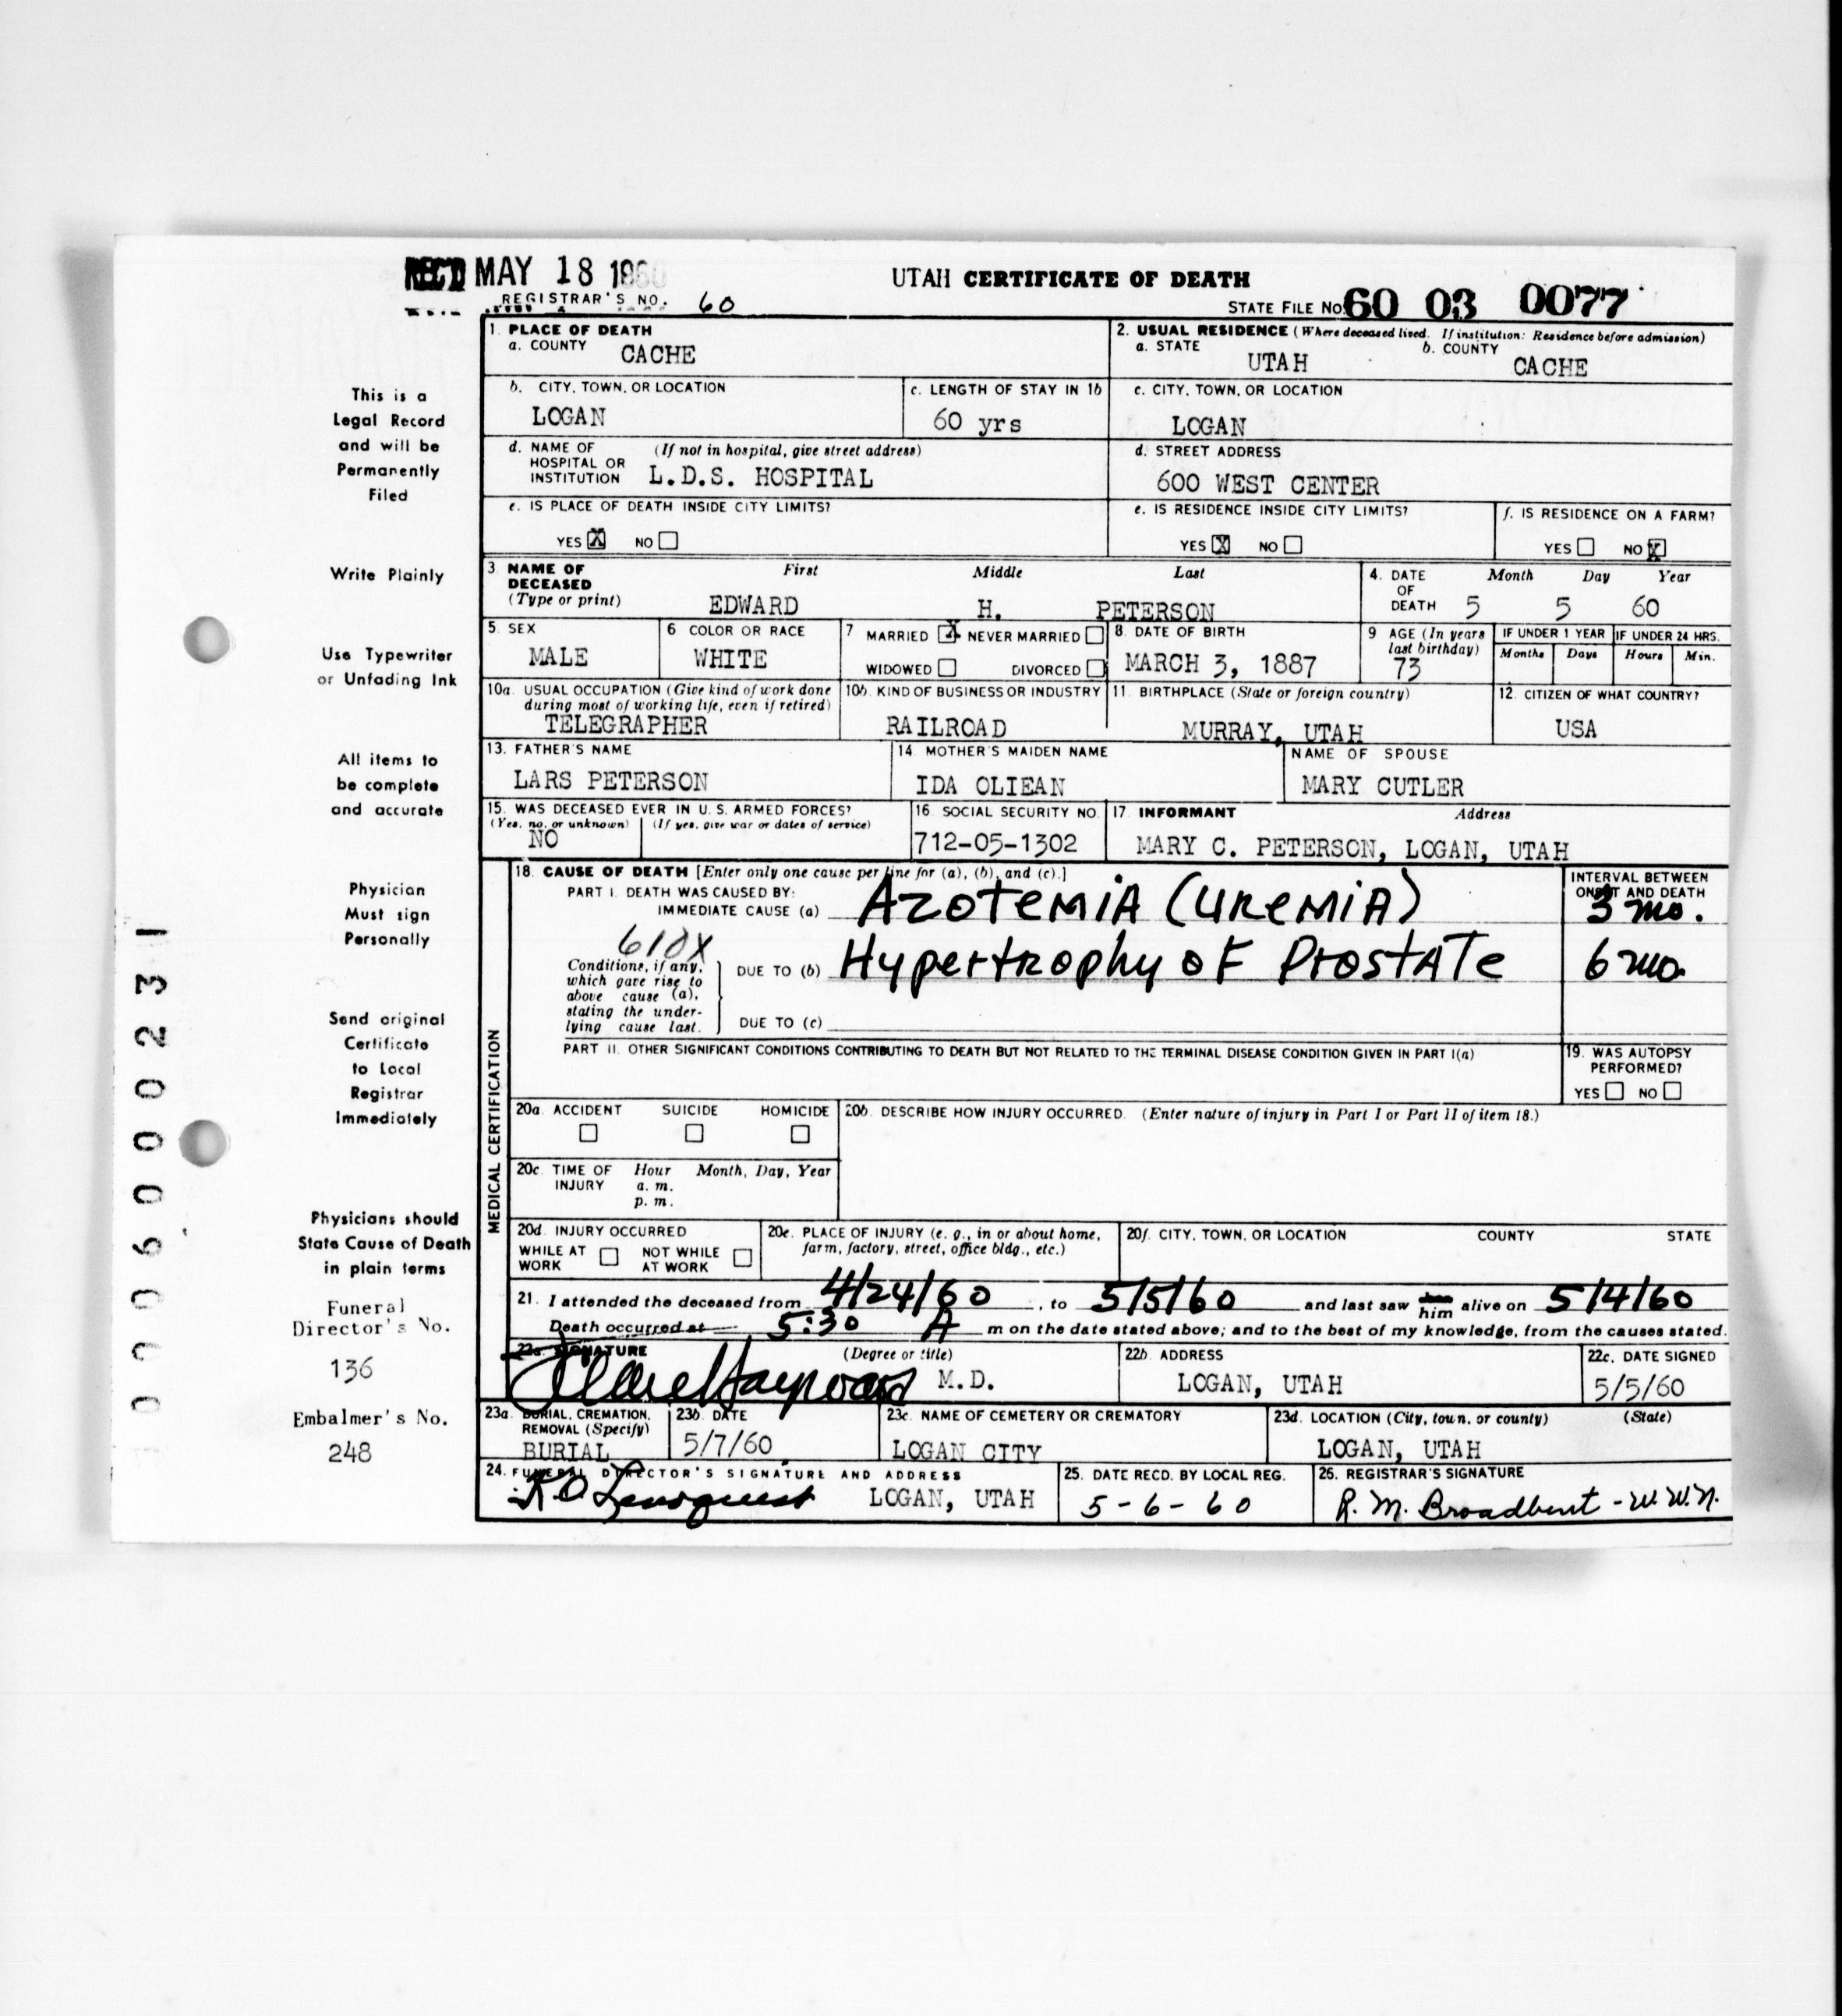 REC'D MAY 18 1960
UTAH CERTIFICATE OF DEATH
REGISTRAR'S NO. 60
STATE FILE NO. 60 03 0077
1. PLACE OF DEATH
a. COUNTY CACHE
2. USUAL RESIDENCE (Where deceased lived. If institution: Residence before admission)
a. STATE UTAH b. COUNTY CACHE
b. CITY, TOWN, OR LOCATION LOGAN
c. LENGTH OF STAY IN 1b 60 yrs
c. CITY, TOWN, OR LOCATION LOGAN
d. NAME OF HOSPITAL OR INSTITUTION (If not in hospital, give street address) L.D.S. HOSPITAL
d. STREET ADDRESS 600 WEST CENTER
e. IS PLACE OF DEATH INSIDE CITY LIMITS?
YES X NO
e. IS RESIDENCE INSIDE CITY LIMITS?
YES X NO
f. IS RESIDENCE ON A FARM?
YES NO X
3. NAME OF DECEASED (Type or print)
First Middle Last
EDWARD H. PETERSON
4. DATE OF DEATH Month Day Year
5 5 60
5. SEX MALE
6 COLOR OR RACE WHITE
7 MARRIED X NEVER MARRIED
WIDOWED DIVORCED
8. DATE OF BIRTH MARCH 3, 1887
9 AGE (In years last birthday) 73
IF UNDER 1 YEAR Months Days
IF UNDER 24 HRS. Hours Min.
10a. USUAL OCCUPATION (Give kind of work done during most of working life, even if retired) TELEGRAPHER
10b. KIND OF BUSINESS OR INDUSTRY RAILROAD
11. BIRTHPLACE (State or foreign country) MURRAY, UTAH
12. CITIZEN OF WHAT COUNTRY? USA
13. FATHER'S NAME LARS PETERSON
14. MOTHER'S MAIDEN NAME IDA OLIEAN
NAME OF SPOUSE MARY CUTLER
15. WAS DECEASED EVER IN U. S. ARMED FORCES?
(Yes, no, or unknown) (If yes, give war or dates of service)
NO
16. SOCIAL SECURITY NO. 712-05-1302
17. INFORMANT Address
MARY C. PETERSON, LOGAN, UTAH
MEDICAL CERTIFICATION
18. CAUSE OF DEATH [Enter only one cause per line for (a), (b), and (c).]
INTERVAL BETWEEN ONSET AND DEATH
PART I. DEATH WAS CAUSED BY:
IMMEDIATE CAUSE (a) AZOTEMIA (UREMIA) 3 mo.
610X
Conditions, if any, which gave rise to above cause (a), stating the underlying cause last.
DUE TO (b) Hypertrophy of Prostate 6 mo.
DUE TO (c)
PART II. OTHER SIGNIFICANT CONDITIONS CONTRIBUTING TO DEATH BUT NOT RELATED TO THE TERMINAL DISEASE CONDITION GIVEN IN PART I(a)
19. WAS AUTOPSY PERFORMED?
YES NO
20a. ACCIDENT SUICIDE HOMICIDE
20b. DESCRIBE HOW INJURY OCCURRED. (Enter nature of injury in Part I or Part II of item 18.)
20c. TIME OF INJURY Hour Month, Day, Year
a. m.
p. m.
20d. INJURY OCCURRED
WHILE AT WORK NOT WHILE AT WORK
20e. PLACE OF INJURY (e. g., in or about home, farm, factory, street, office bldg., etc.)
20f. CITY, TOWN, OR LOCATION COUNTY STATE
21. I attended the deceased from 4/24/60, to 5/5/60 and last saw him alive on 5/4/60
Death occurred at 5:30 A m on the date stated above; and to the best of my knowledge, from the causes stated.
22a. SIGNATURE (Degree or title)
Hayward M.D.
22b. ADDRESS LOGAN, UTAH
22c. DATE SIGNED 5/5/60
23a. BURIAL, CREMATION, REMOVAL (Specify) BURIAL
23b. DATE 5/7/60
23c. NAME OF CEMETERY OR CREMATORY LOGAN CITY
23d. LOCATION (City, town, or county) (State)
LOGAN, UTAH
24. FUNERAL DIRECTOR'S SIGNATURE AND ADDRESS
LOGAN, UTAH
25. DATE RECD. BY LOCAL REG. 5-6-60
26. REGISTRAR'S SIGNATURE
R. M. Broadbent - W.W.N.
This is a
Legal Record
and will be
Permanently
Filed
Write Plainly
Use Typewriter
or Unfading Ink
All items to
be complete
and accurate
Physician
Must sign
Personally
Send original
Certificate
to Local
Registrar
Immediately
Physicians should
State Cause of Death
in plain terms
Funeral
Director's No.
136
Embalmer's No.
248
0006000231